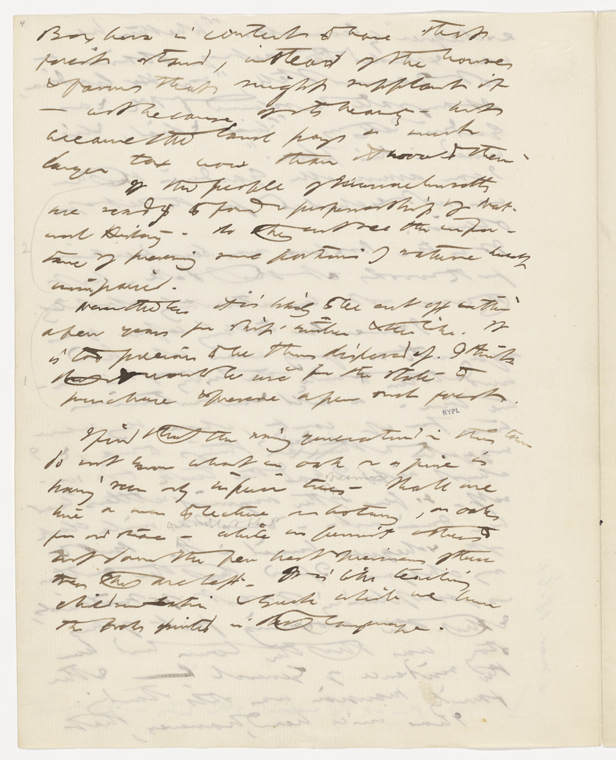 Boxboro is content to have that
forest stand, instead of the houses
& farms that might supplant it
— not because of its beauty — but
because the land pays a much
larger tax now than it would then.
If the people of Massachusetts
are ready to found a professorship of Nat-
ural History — do they not see the impor-
tance of preserving some portions of nature herself
unimpaired.
Nevertheless it is likely to be cut off within
a few years for ship-timber & the like. It
is too precious to be thus disposed of. I think
that it would be wise for the state to
purchase & preserve a few such forests.
NYPL
I find that the rising generation in this town
do not know what an oak or a pine is
having seen only inferior Shall we
hire a man to lecture on botany, on oaks
for instance — while we permit others to
cut down the few best specimens of these
trees that are left — It is like teaching
children Latin & Greek while we burn
the books printed in that language.